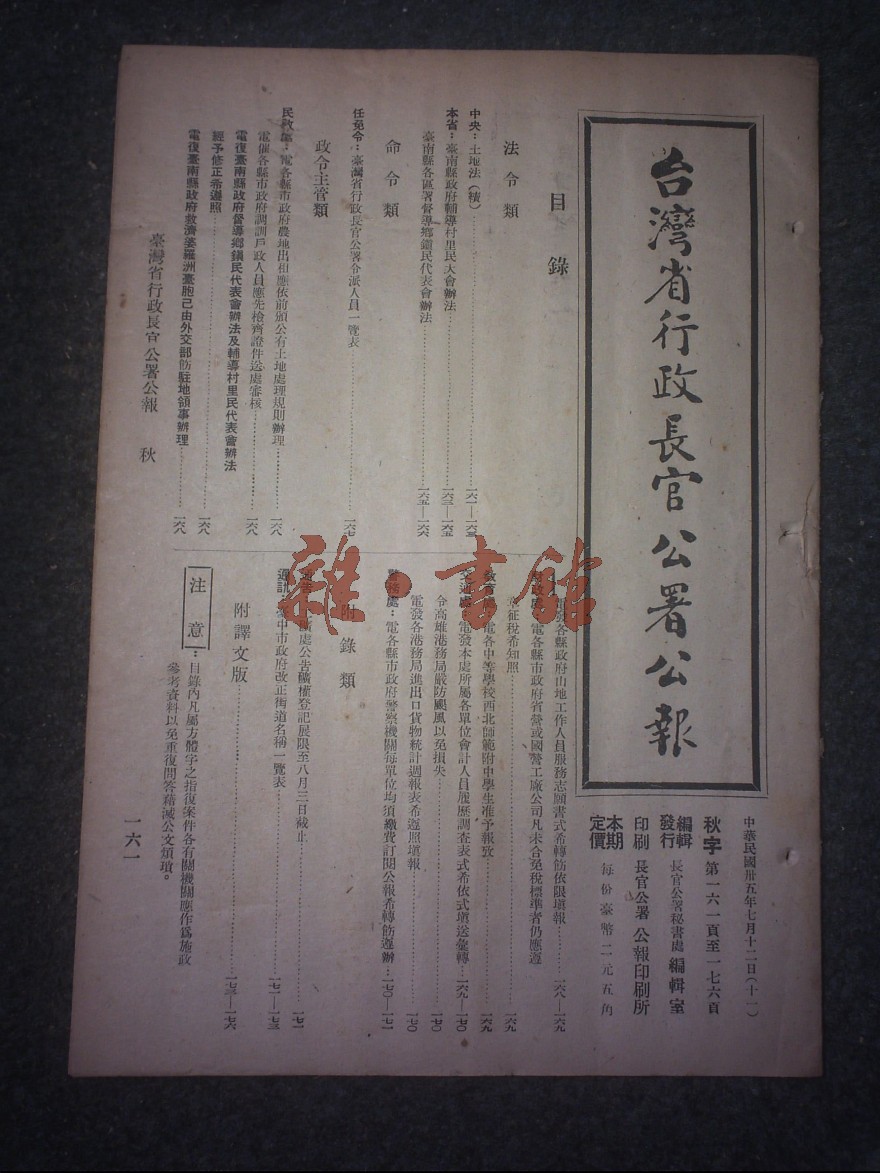 台灣省行政長官公署公報
中華民國卅五年七月十二日(十一)
秋字 第一六一頁至一七六頁
編輯發行 長官公署秘書處 編輯室
印刷 長官公署 公報印刷所
本期定價 每份臺幣二元五角
目錄
法令類
中央:土地法(續)……一六一—一六三
本省:臺南縣政府輔導村里民大會辦法……一六三—一六五
臺南縣各區署督導鄉鎮民代表會辦法……一六五—一六六
命令類
任免令:臺灣省行政長官公署令派人員一覽表……一六七
政令主管類
民政處:電各縣市政府農地出租應依前頒公有土地處理規則辦理……一六八
電催各縣市政府調訓戶政人員應先檢齊證件送處審核……一六八
電復臺南縣政府督導鄉鎮民代表會辦法及輔導村里民代表會辦法
經予修正希遵照……一六八
電復臺南縣政府救濟婆羅洲臺胞已由外交部飭駐地領事辦理……一六八
各縣政府山地工作人員服務志願書式希轉飭依限填報……一六八—一六九
財政處:電各縣市政府省營或國營工廠公司凡未合免稅標準者仍應遵
征稅希知照……一六九
教育處:電各中等學校西北師範附中學生准予報致……一六九
交通處:電發本處所屬各單位會計人員履歷調查表式希依式填送彙轉……一六九—一七〇
令高雄港務局嚴防颶風以免損失……一七〇
電發各港務局進出口貨物統計週報表希遵照填報……一七〇
警務處:電各縣市政府警察機關每單位均須繳費訂閱公報希轉飭遵辦……一七〇—一七一
附錄類
處公告礦權登記展限至八月三日截止……一七一
通訊:臺中市政府改正街道名稱一覽表……一七一—一七三
附譯文版……一七三—一七六
注意:目錄內凡屬方體字之指復案件各有關機關應作爲施政
參考資料以免重復問答藉減公文煩瑣。
臺灣省行政長官公署公報 秋
一六一
雜·書館